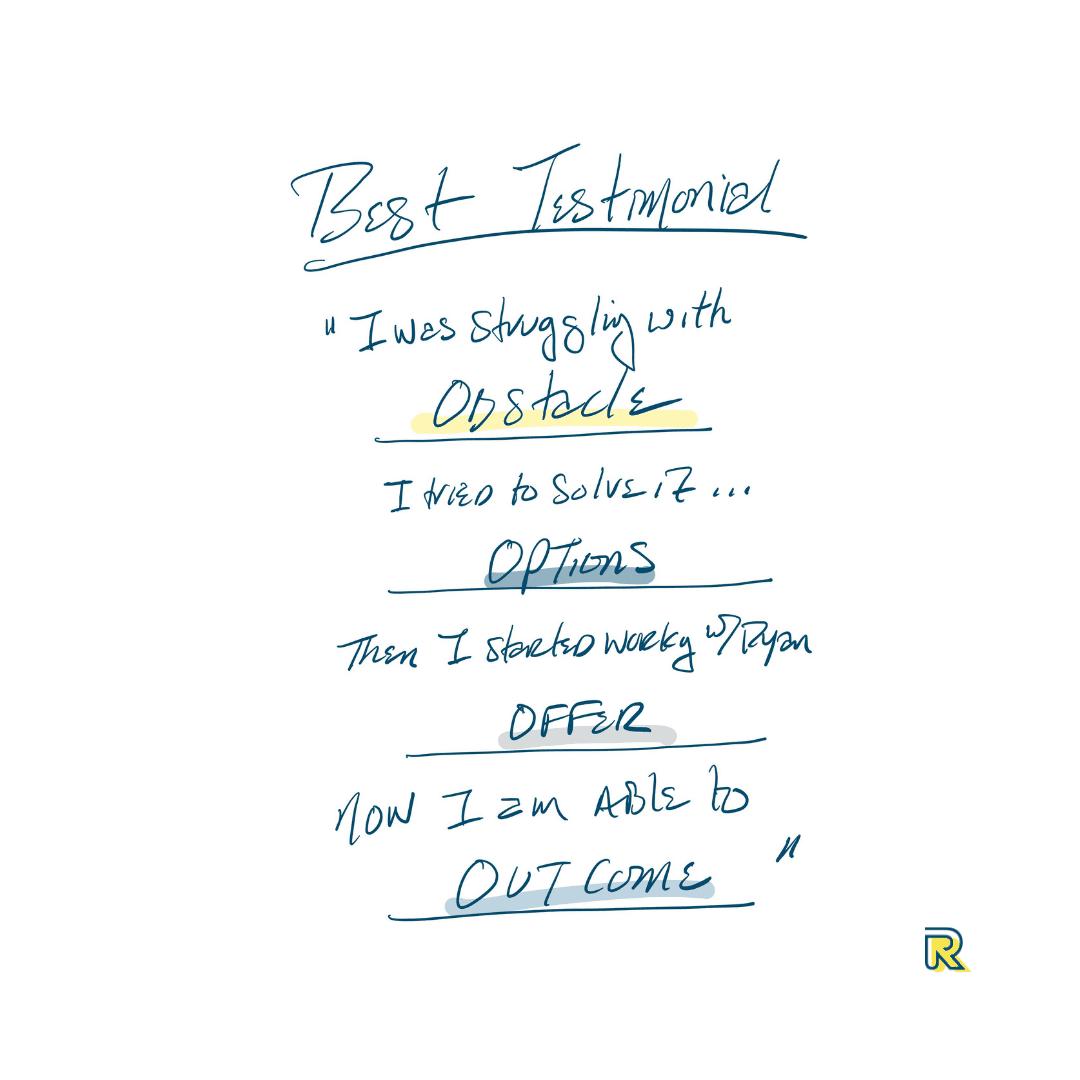 Best Testimonial
" I was struggling with
Obstacle
I tried to solve it ...
Options
Then I started workg w/ Ryan
OFFER
now I am ABLE to
OUTCOME "
R